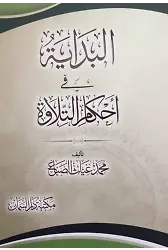 البداية
في
أحكام التلاوة
تأليف
محمد غياث الصباغ